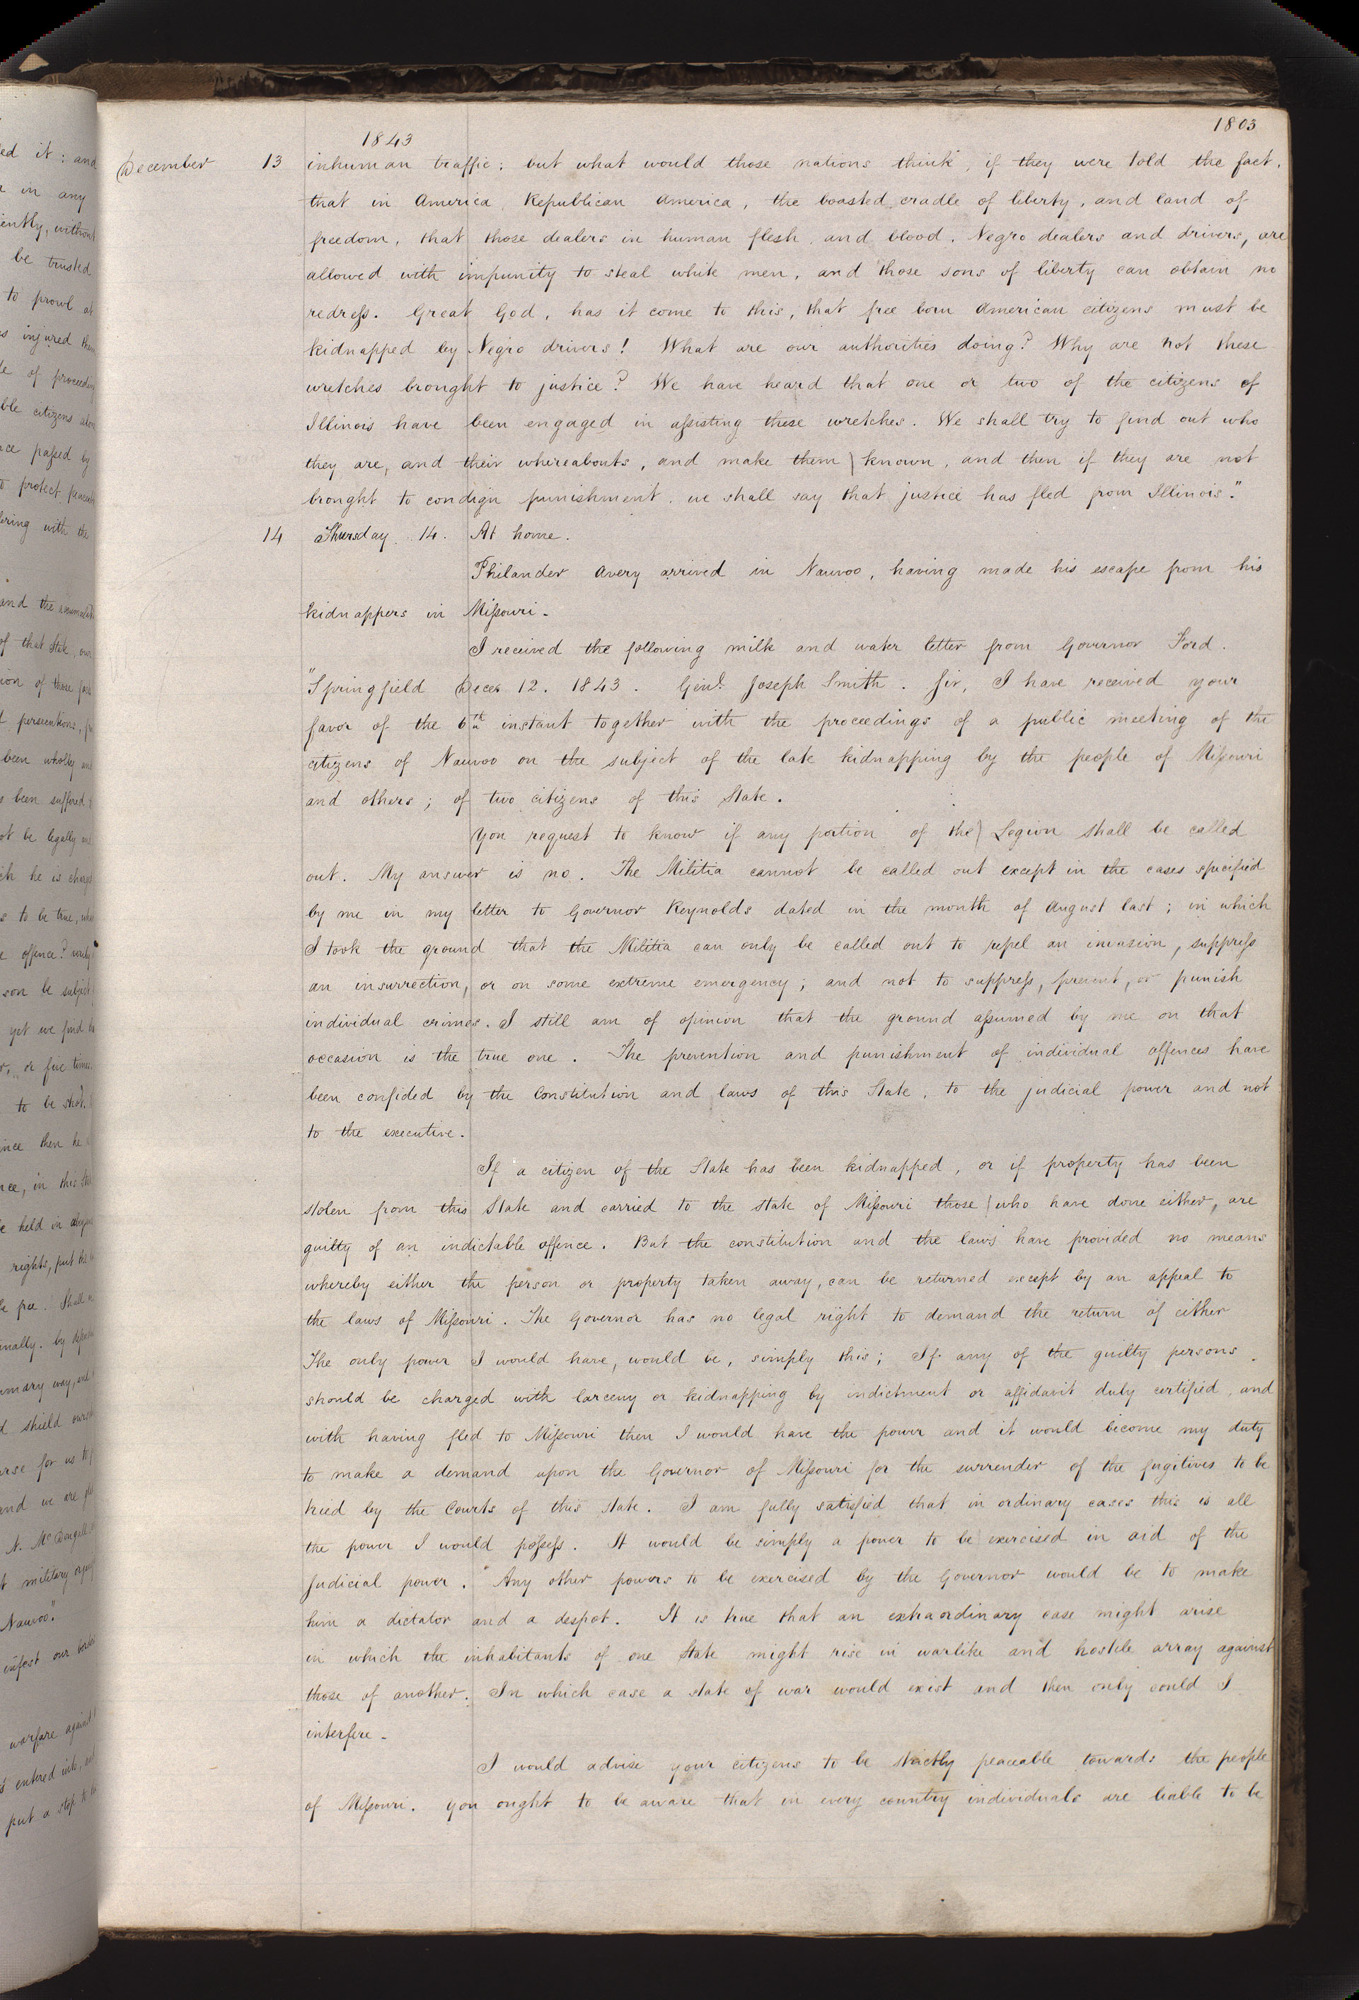 1843
1803
December 13 inhuman traffic; but what would those nations think, if they were told the fact,
that in America, Republican America, the boasted cradle of liberty, and land of
freedom, that those dealers in human flesh and blood, Negro dealers and drivers, are
allowed with impunity to steal white men, and those sons of liberty can obtain no
redress. Great God, has it come to this, that free born American citizens must be
kidnapped by Negro drivers! What are our authorities doing? Why are not these
wretches brought to justice? We have heard that one or two of the citizens of
Illinois have been engaged in assisting these wretches. We shall try to find out who
they are, and their whereabouts, and make them known, and then if they are not
brought to condign punishment, we shall say that justice has fled from Illinois."
14 Thursday 14. At home.
Philander Avery arrived in Nauvoo, having made his escape from his
kidnappers in Missouri.
I received the following milk and water letter from Governor Ford.
"Springfield Decer 12. 1843. Genl. Joseph Smith. Sir, I have received your
favor of the 6th instant together with the proceedings of a public meeting of the
citizens of Nauvoo on the subject of the late kidnapping by the people of Missouri
and others; of two citizens of this State.
You request to know if any portion of the Legion shall be called
out. My answer is no. The Militia cannot be called out except in the cases specified
by me in my letter to Governor Reynolds dated in the month of August last; in which
I took the ground that the Militia can only be called out to repel an invasion, suppress
an insurrection, or on some extreme emergency; and not to suppress, prevent, or punish
individual crimes. I still am of opinion that the ground assumed by me on that
occasion is the true one. The prevention and punishment of individual offences have
been confided by the Constitution and laws of this State, to the judicial power and not
to the executive.
If a citizen of the State has been kidnapped, or if property has been
stolen from this State and carried to the state of Missouri those who have done either, are
guilty of an indictable offence. But the constitution and the laws have provided no means
whereby either the person or property taken away, can be returned except by an appeal to
the laws of Missouri. The Governor has no legal right to demand the return of either
The only power I would have, would be, simply this; If any of the guilty persons
should be charged with larceny or kidnapping by indictment or affidavit duly certified, and
with having fled to Missouri then I would have the power and it would become my duty
to make a demand upon the Governor of Missouri for the surrender of the fugitives to be
tried by the Courts of this state. I am fully satisfied that in ordinary cases this is all
the power I would possess. It would be simply a power to be exercised in aid of the
Judicial power. Any other powers to be exercised by the Governor would be to make
him a dictator and a despot. It is true that an extraordinary case might arise
in which the inhabitants of one State might rise in warlike and hostile array against
those of another. In which case a state of war would exist and then only could I
interfere.
I would advise your citizens to be strictly peaceable towards the people
of Missouri. You ought to be aware that in every country individuals are liable to be